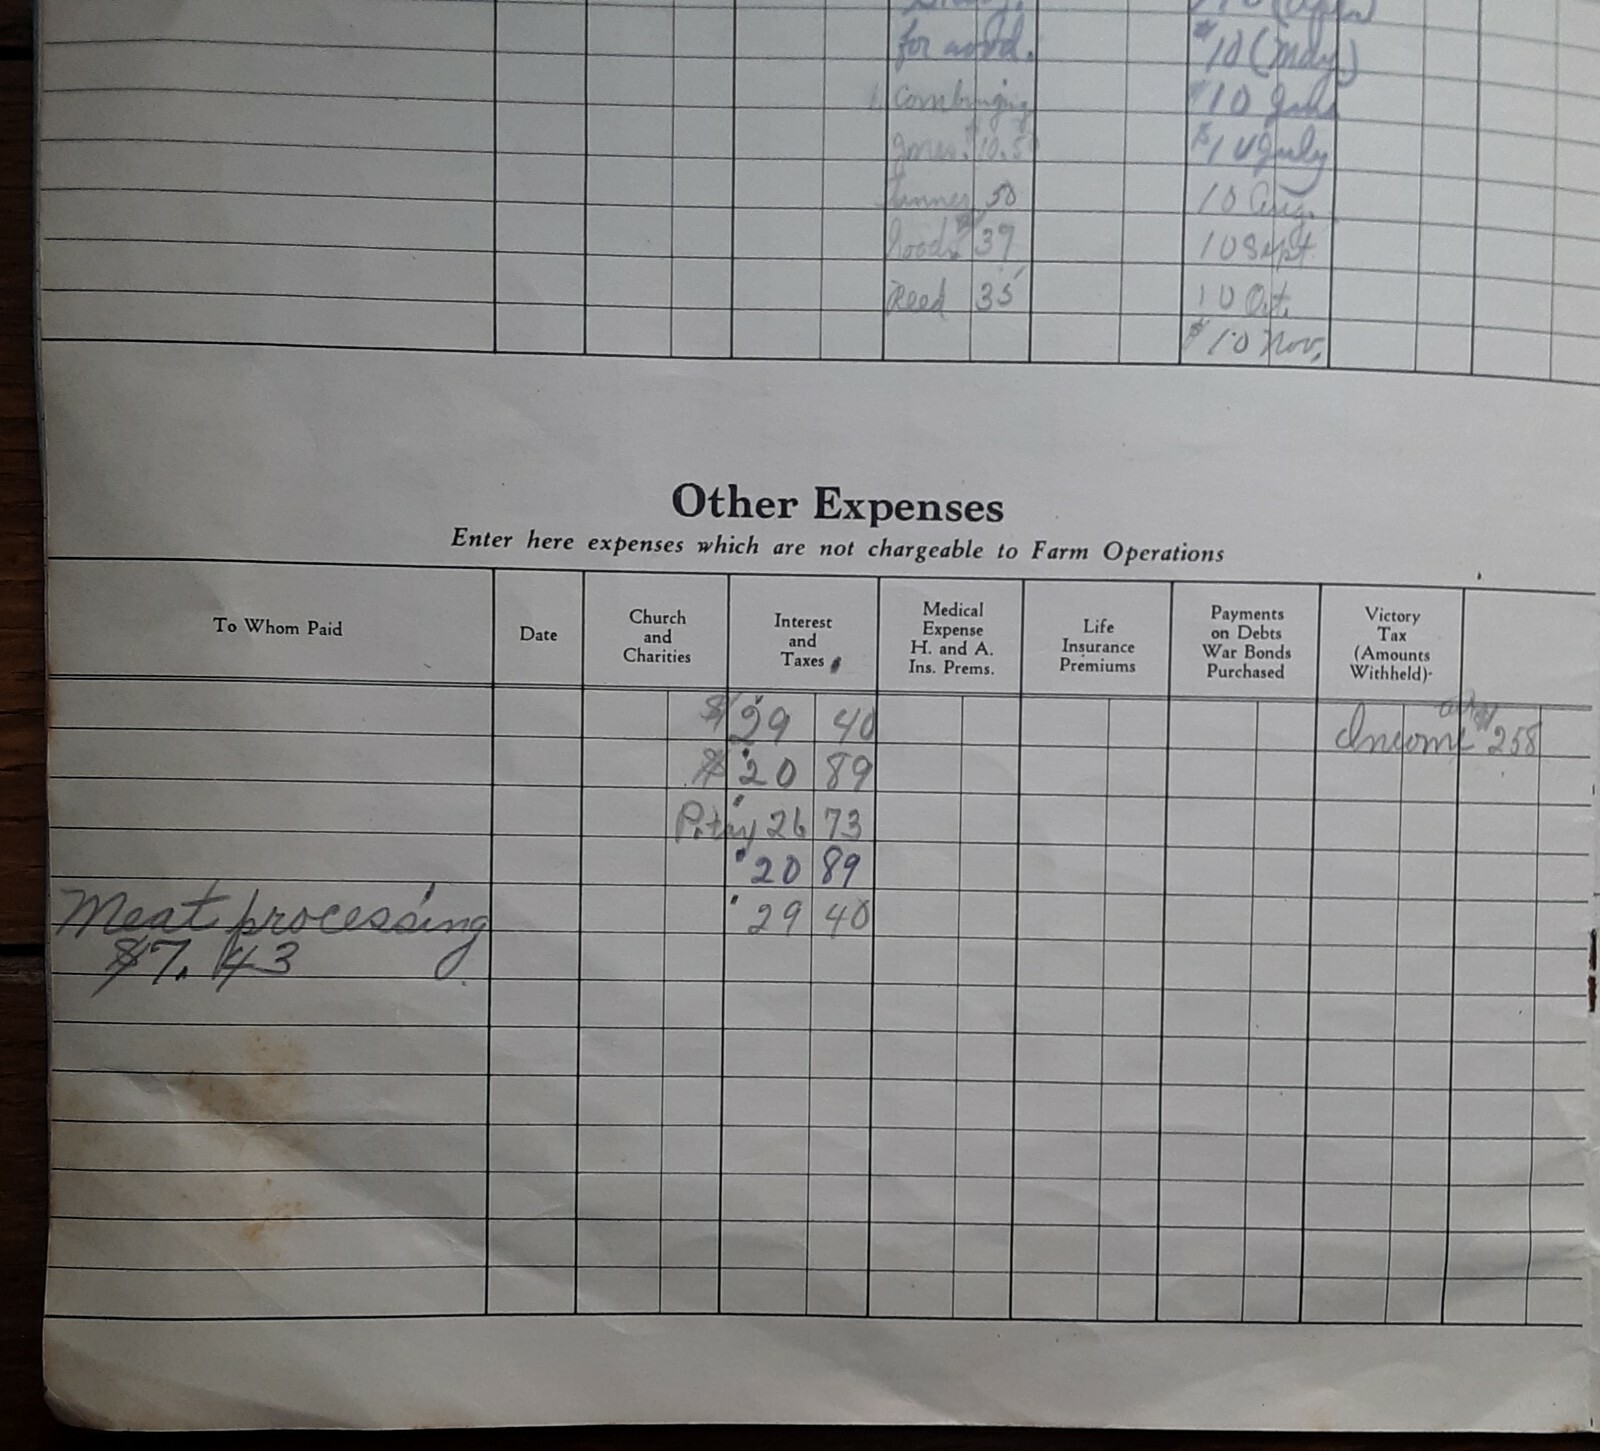 for wood. $10 (May)
Combining $10 June
Jones. 10.5 $10 July
Tanner 50 10 Aug.
39 10 Sept.
Reed 35 10 Oct.
$10 Nov.
Other Expenses
Enter here expenses which are not chargeable to Farm Operations
To Whom Paid
Date
Church
and
Charities
Interest
and
Taxes
Medical
Expense
H. and A.
Ins. Prems.
Life
Insurance
Premiums
Payments
on Debts
War Bonds
Purchased
Victory
Tax
(Amounts
Withheld)-
$29 40 Income $258
$20 89
26 73
20 89
Meat processing 29 40
$7.43